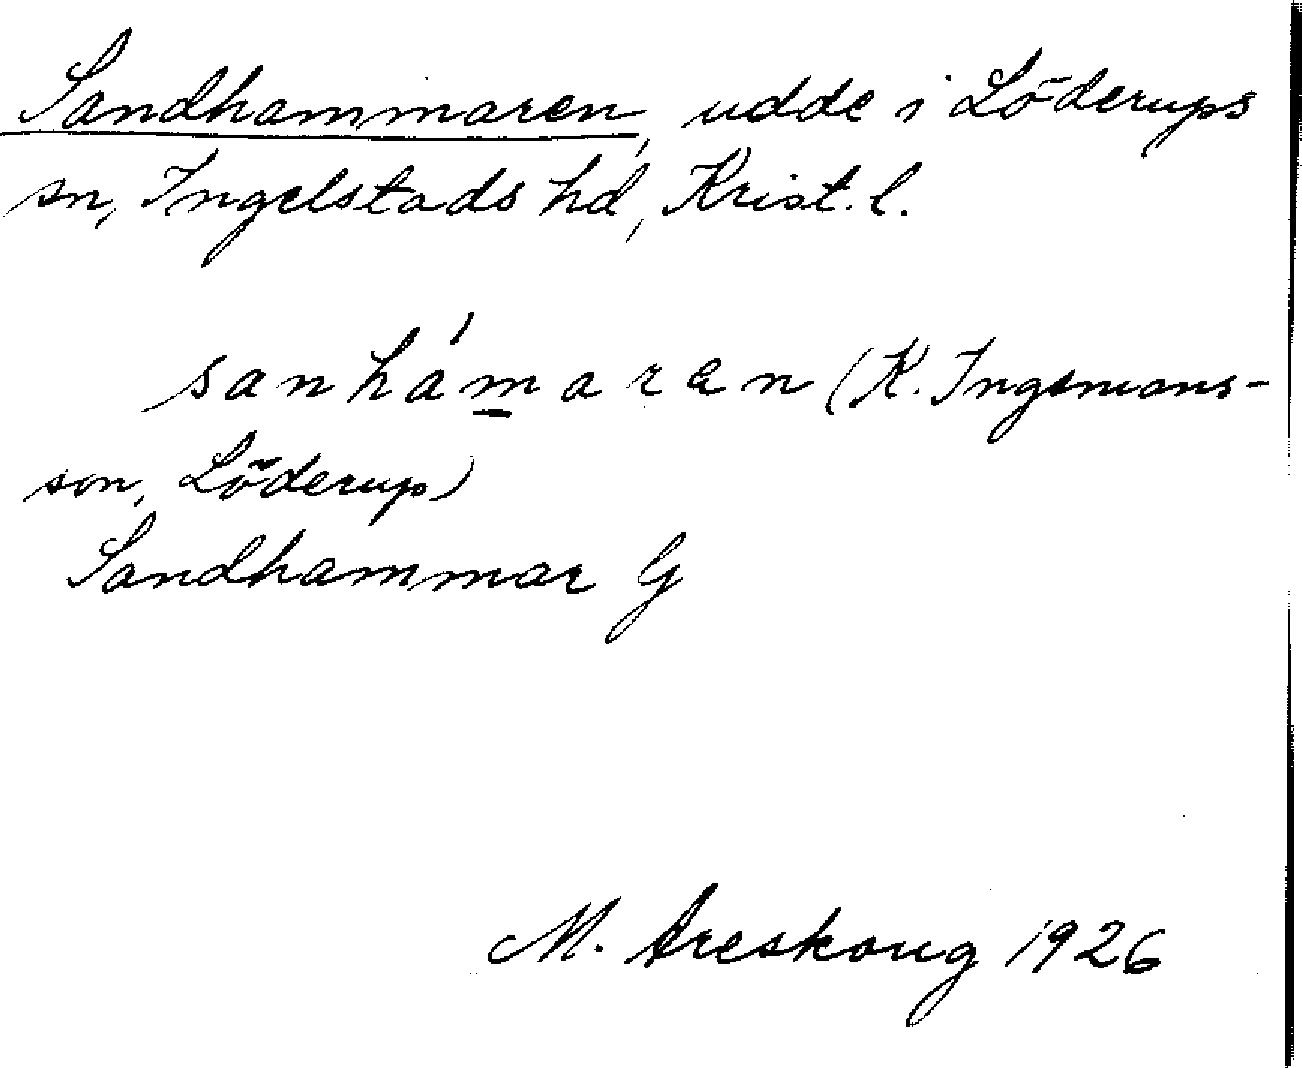 Sandhammaren, udde i Löderups
sn, Ingelstads hd, Krist. l.
sanhámaren (K. Ingemans-
son, Löderup)
Sandhammar G
M. Areskoug 1926